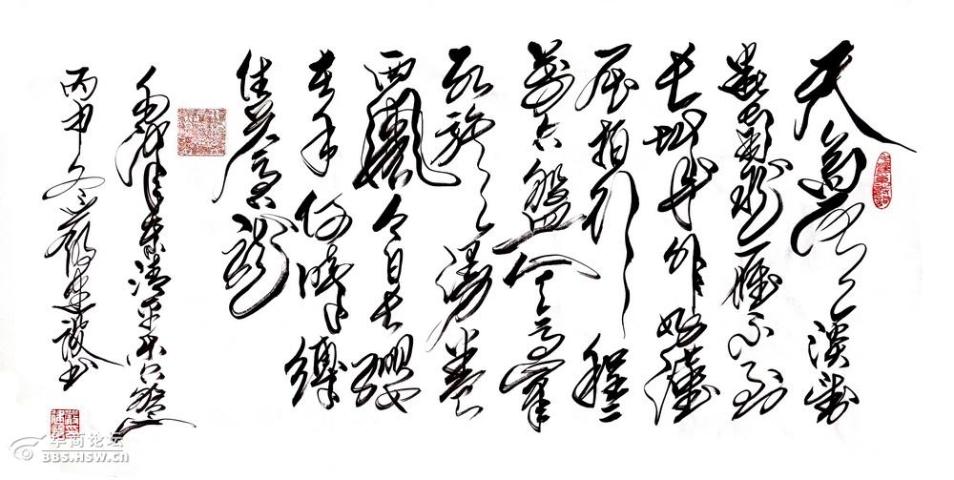 天高云淡望
断南飞雁不到
长城非好汉
屈指行程二
万六盘山上高峰
红旗漫卷
西风今日长缨
在手何时缚
住苍龙
毛泽东清平乐六盘山
丙申冬建设书
华商论坛
BBS.HSW.CN